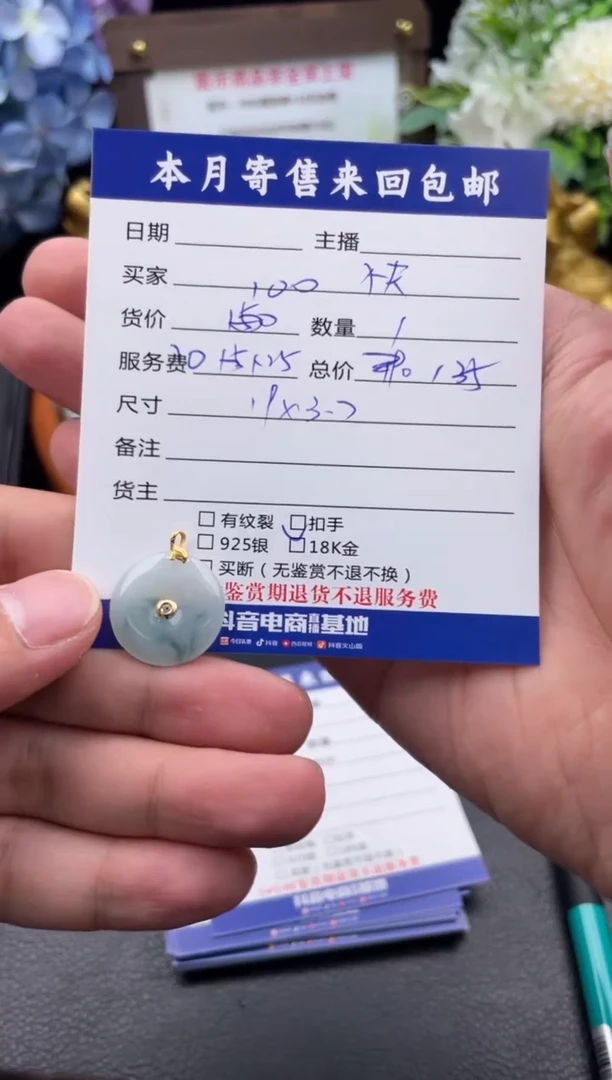 本月寄售来回包邮
日期 主播
买家 100
货价 150 数量 1
服务费 总价 135
尺寸
备注
货主
□ 有纹裂 □ 扣手
□ 925银 □ 18K金
买断（无鉴赏不退不换）
鉴赏期退货不退服务费
抖音电商直播基地
今日头条 抖音 西瓜视频 抖音火山版